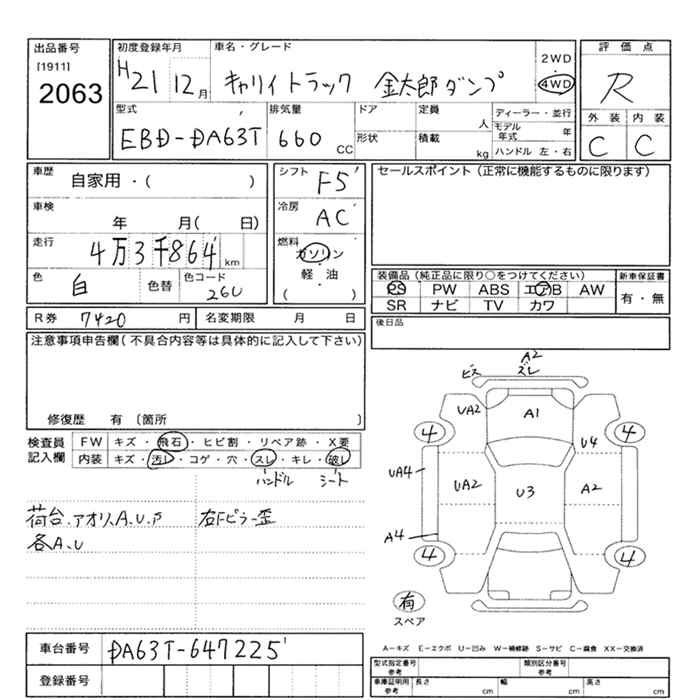 出品番号
[1911]
2063
初度登録年月
H21 12月
車名・グレード
キャリイトラック 金太郎ダンプ
2WD
4WD
評価点
R
型式
EBD-DA63T
排気量
660 CC
ドア
形状
定員
人
積載
kg
ディーラー・並行
モデル年式 年
ハンドル 左・右
外装 内装
C C
車歴
自家用・( )
車検
年 月( 日)
走行
4万3千864 km
色
白
色替
色コード
26U
シフト
F5
冷房
AC
燃料
ガソリン
・
軽・油
( )
セールスポイント(正常に機能するものに限ります)
装備品(純正品に限り○をつけてください)
PS PW ABS エアB AW
SR ナビ TV カワ
新車保証書
有・無
R券 7420 円
名変期限 月 日
後日品
注意事項申告欄(不具合内容等は具体的に記入して下さい)
修復歴 有 〔箇所 〕
検査員記入欄
FW キズ・飛石・ヒビ割・リペア跡・X要
内装 キズ・汚レ・コゲ・穴・スレ・キレ・破レ
ハンドル シート
荷台.アオリ.A.U.P
各A.U
右Fピラー歪
A2
ビス ズレ
UA2
A1
4
4
U4
UA4
UA2
U3
A2
A4
4
4
有
スペア
A-キズ E-エクボ U-凹み W-補修跡 S-サビ C-腐食 XX-交換済
車台番号 DA63T-647225
登録番号
型式指定番号 参考
類別区分番号 参考
車庫証明用 参考
長さ cm
幅 cm
高さ cm